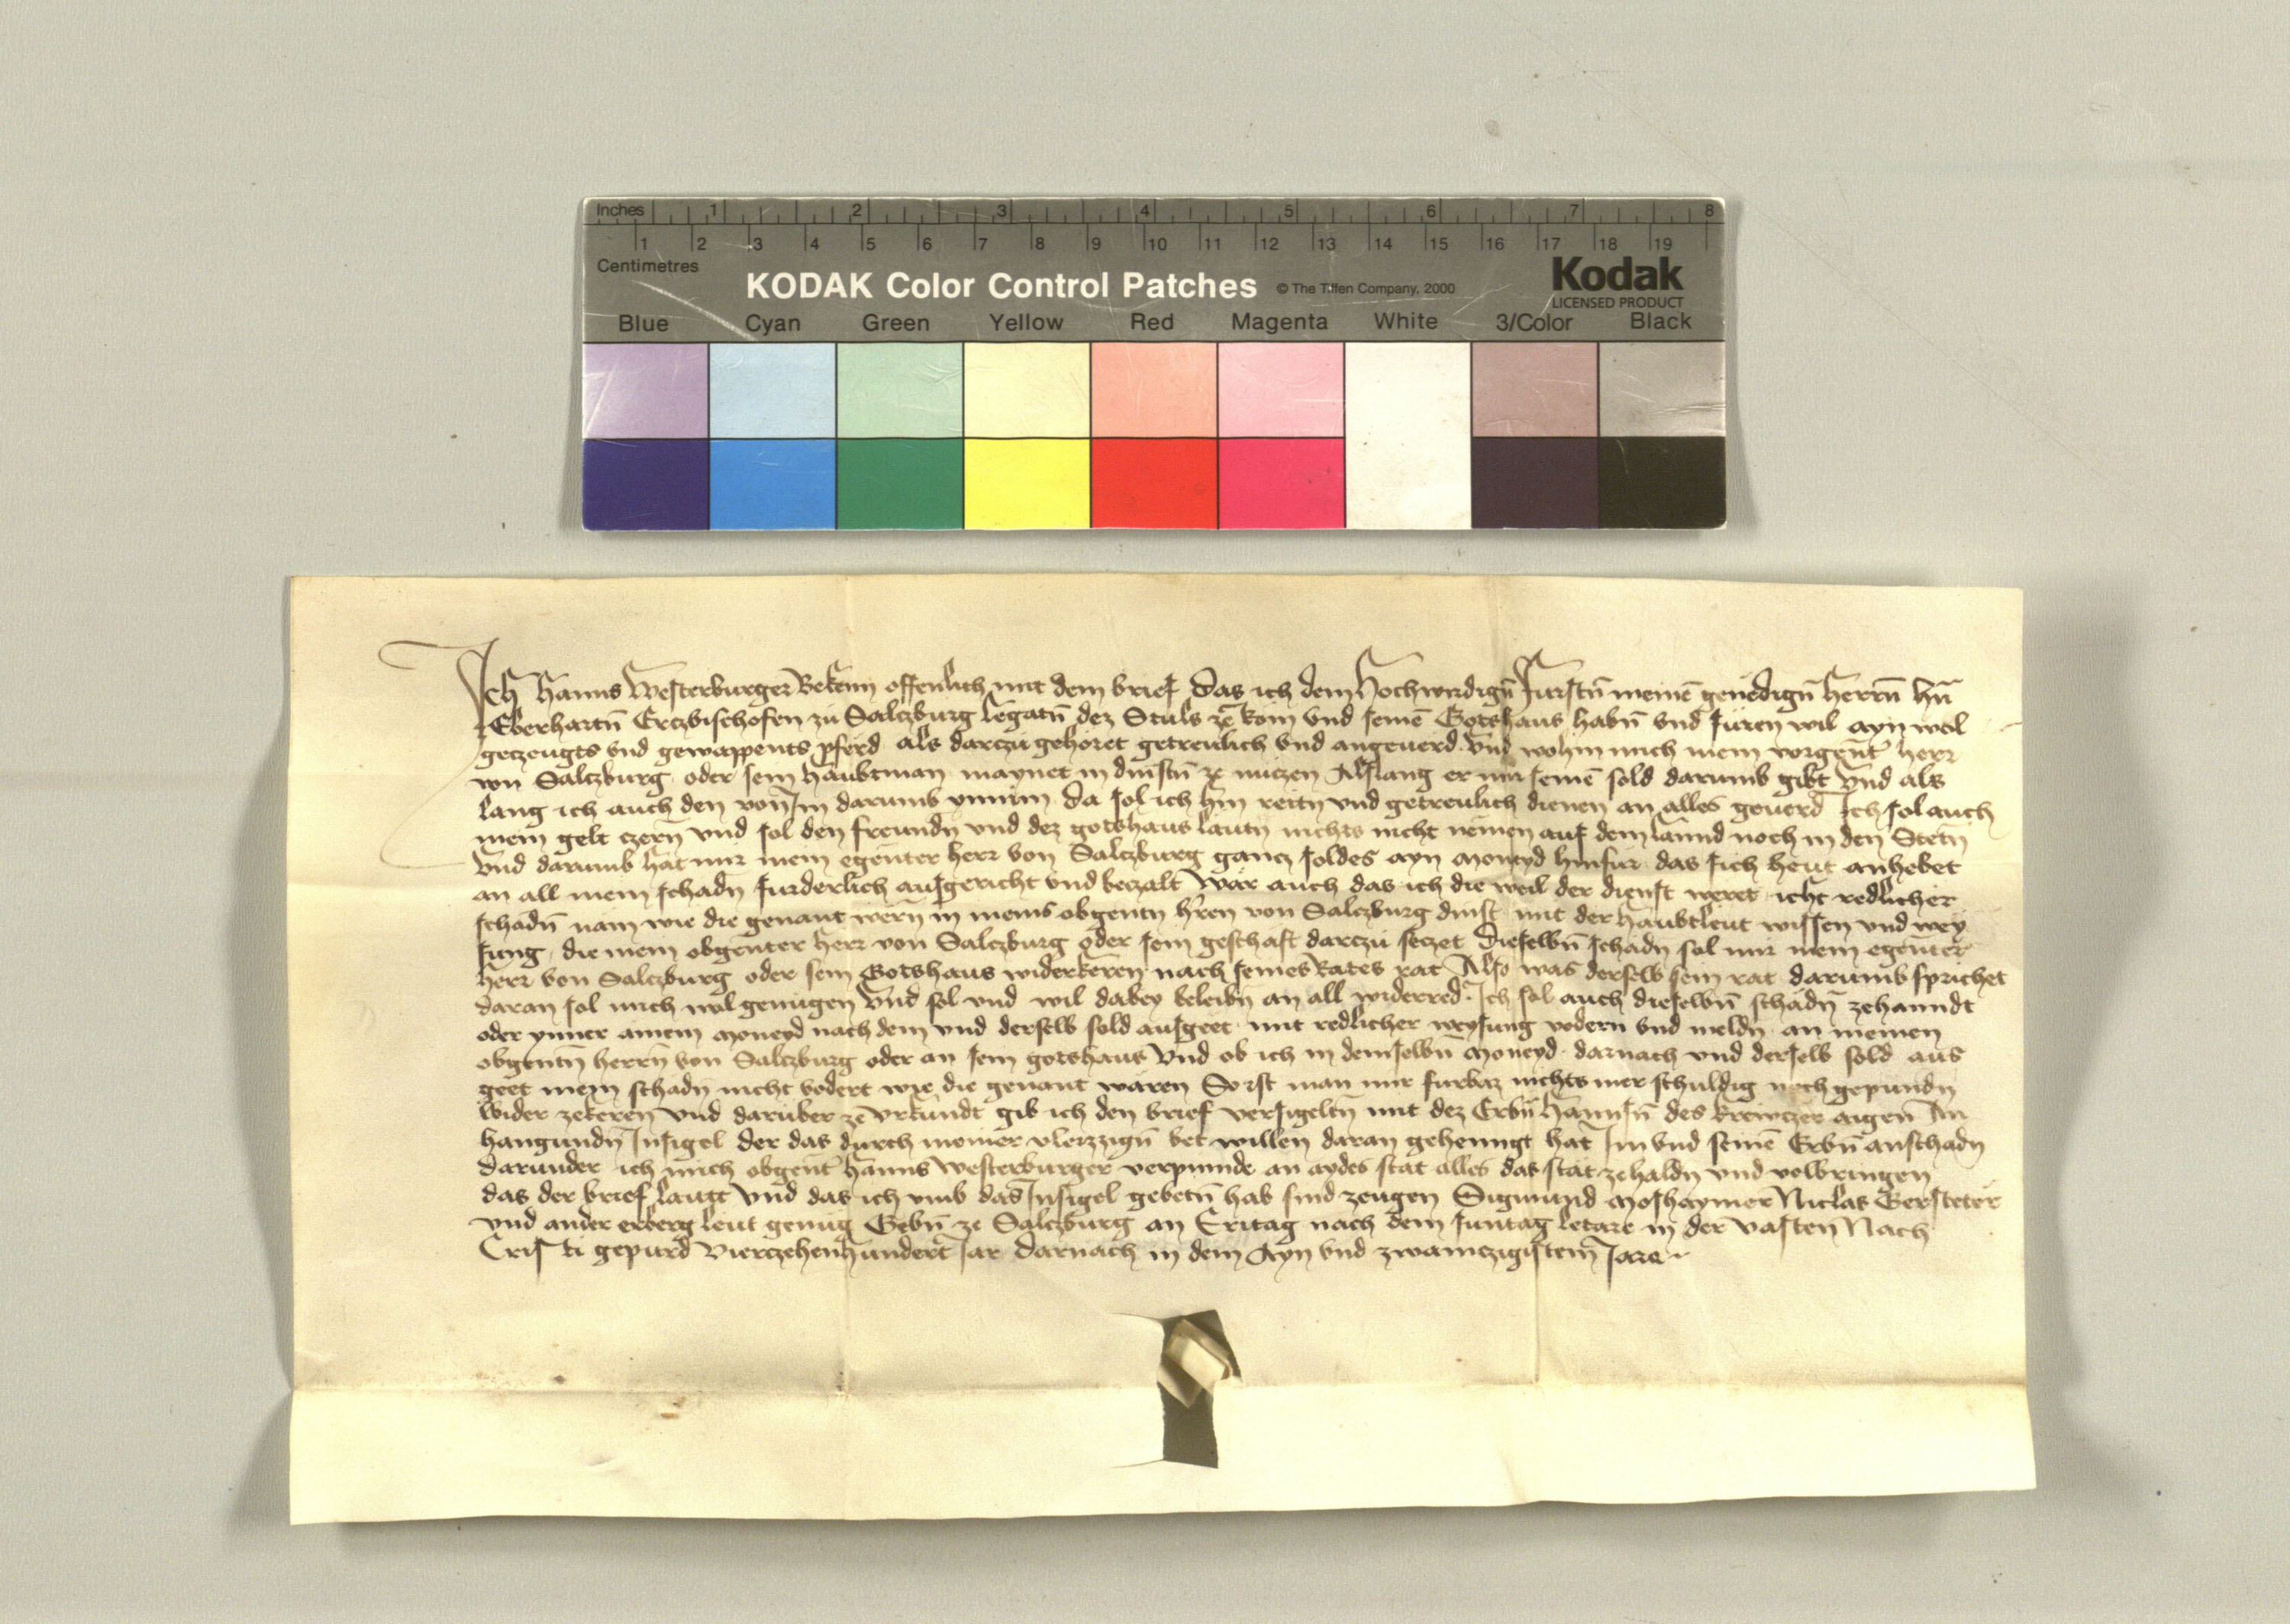 Inches 1 2 3 4 5 6 7 8
1 2 3 4 5 6 7 8 9 10 11 12 13 14 15 16 17 18 19
Centimetres
KODAK Color Control Patches © The Tiffen Company, 2000 Kodak
LICENSED PRODUCT
Blue Cyan Green Yellow Red Magenta White 3/Color Black
Ich Hanns Westerburger Bekenn offenlich mit dem brief Das ich dem Hochwirdign̄ Fürstn̄ meinē genēdign̄ Herrn̄ hn̄
Eberhartn̄ Erczbischofen zu Salczburg legatn̄ dez Stuls ze Rom vnd seinē Gotshaus habn̄ vnd füren wil ayn wol
geczeugts vnd gewappents pferd als darczu gehöret getreulich vnd angeuerd Vnd wohin mich mein vorgent̄ herr
von Salczburg oder sein haubtman maynet in dinstn̄ ze nüczen Alslang er mir seinē sold darumb gibt Vnd als
lang ich auch den von Im darumb ynnim da sol ich hin reitn̄ vnd getreulich dienen an alles geuerd Ich sol auch
mein gelt czern̄ vnd sol den freundn̄ vnd dez gotshaus läutn̄ nichts nicht nēmen auf dem lannd noch in den Stetn̄
Vnd darumb hat mir mein egēnter herr von Salczburg gancz soldes ayn Moneyd hinfür das sich heut anhebet
an all mein schadn̄ furderlich ausgericht vnd beczalt Wär auch das ich die weil der dienst weret icht redlicher
schadn̄ nam wie die genant wern̄ in meins obgentn̄ hren von Salczburg dinst mit der haubtleut wissen vnd wey
sung die mein obgenter herr von Salczburg oder sein geschäft darczu seczet Dieselbn̄ schädn̄ sol mir mein egenter
herr von Salczburg oder sein Gotshaus widerkeren nach seines Rates rat Also was derselb sein rat darumb sprichet
daran sol mich wol genügen Vnd sol vnd wil dabey beleibn̄ an all widerred Ich sol auch dieselbn̄ schädn̄ zehanndt
oder ynner ainem Moneyd nach dem vnd derselb sold ausgeet mit redlicher weysung vodern vnd meldn̄ an meinen
obgentn̄ herrn̄ von Salczburg oder an sein gotshaus Vnd ob ich in demselbn̄ Moneyd darnach vnd derselb sold aus
geet mein schadn̄ nicht vodert wie die genant wären So ist man mir furbaz nichts mer schuldig noch gepundn̄
wider zekeren Vnd darüber ze Vrkundt gib ich den brief versigeltn̄ mit dez Erbn̄ Hannsn̄ des krewczer aigen An
hangundn̄ Insigel der das durch meiner vleizzign̄ bet willen daran gehenngt hat Im vnd seinē Erbn̄ anschadn̄
darunder ich mich obgent̄ Hanns Westerburger verpinnde an aydes stat alles das stät zehaldn̄ vnd volbringen
das der brief lautt Vnd das ich vmb das Insigel gebetn̄ hab sind zeugen Sigmund Moshaymer Niclas Gersteter
vnd ander erberg leut genüg Gebn̄ ze Salczburg an Eritag nach dem Suntag letare in der vasten Nach
Cristi gepurd Vierczehenhundert Jar darnach in dem Ayn vnd zwainczigistem Jare